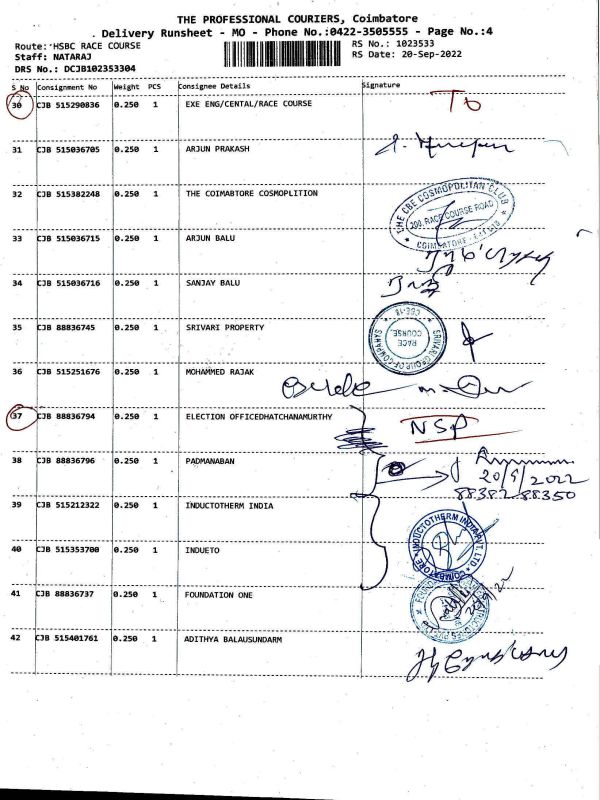 THE PROFESSIONAL COURIERS, Coimbatore
Delivery Runsheet - MO - Phone No.:0422-3505555 - Page No.:4
Route: HSBC RACE COURSE RS No.: 1023533
Staff: NATARAJ RS Date: 20-Sep-2022
DRS No.: DCJB102353304
S No Consignment No Weight PCS Consignee Details Signature
30 CJB 515290836 0.250 1 EXE ENG/CENTAL/RACE COURSE
31 CJB 515036705 0.250 1 ARJUN PRAKASH
32 CJB 515382248 0.250 1 THE COIMABTORE COSMOPLITION
THE CBE COSMOPOLITAN CLUB
200, RACE COURSE ROAD
COIMBATORE
33 CJB 515036715 0.250 1 ARJUN BALU
34 CJB 515036716 0.250 1 SANJAY BALU
35 CJB 88836745 0.250 1 SRIVARI PROPERTY
SRIVARI GROUP OF COMPANIES
RACE
COURSE
CBE-18
36 CJB 515251676 0.250 1 MOHAMMED RAJAK
37 CJB 88836794 0.250 1 ELECTION OFFICEDHATCHANAMURTHY NSP
38 CJB 88836796 0.250 1 PADMANABAN
20/9/2022
88382-88350
39 CJB 515212322 0.250 1 INDUCTOTHERM INDIA
INDUCTOTHERM INDIA PVT. LTD
COIMBATORE
40 CJB 515353700 0.250 1 INDUETO
41 CJB 88836737 0.250 1 FOUNDATION ONE
20/9/22
42 CJB 515401761 0.250 1 ADITHYA BALAUSUNDARM